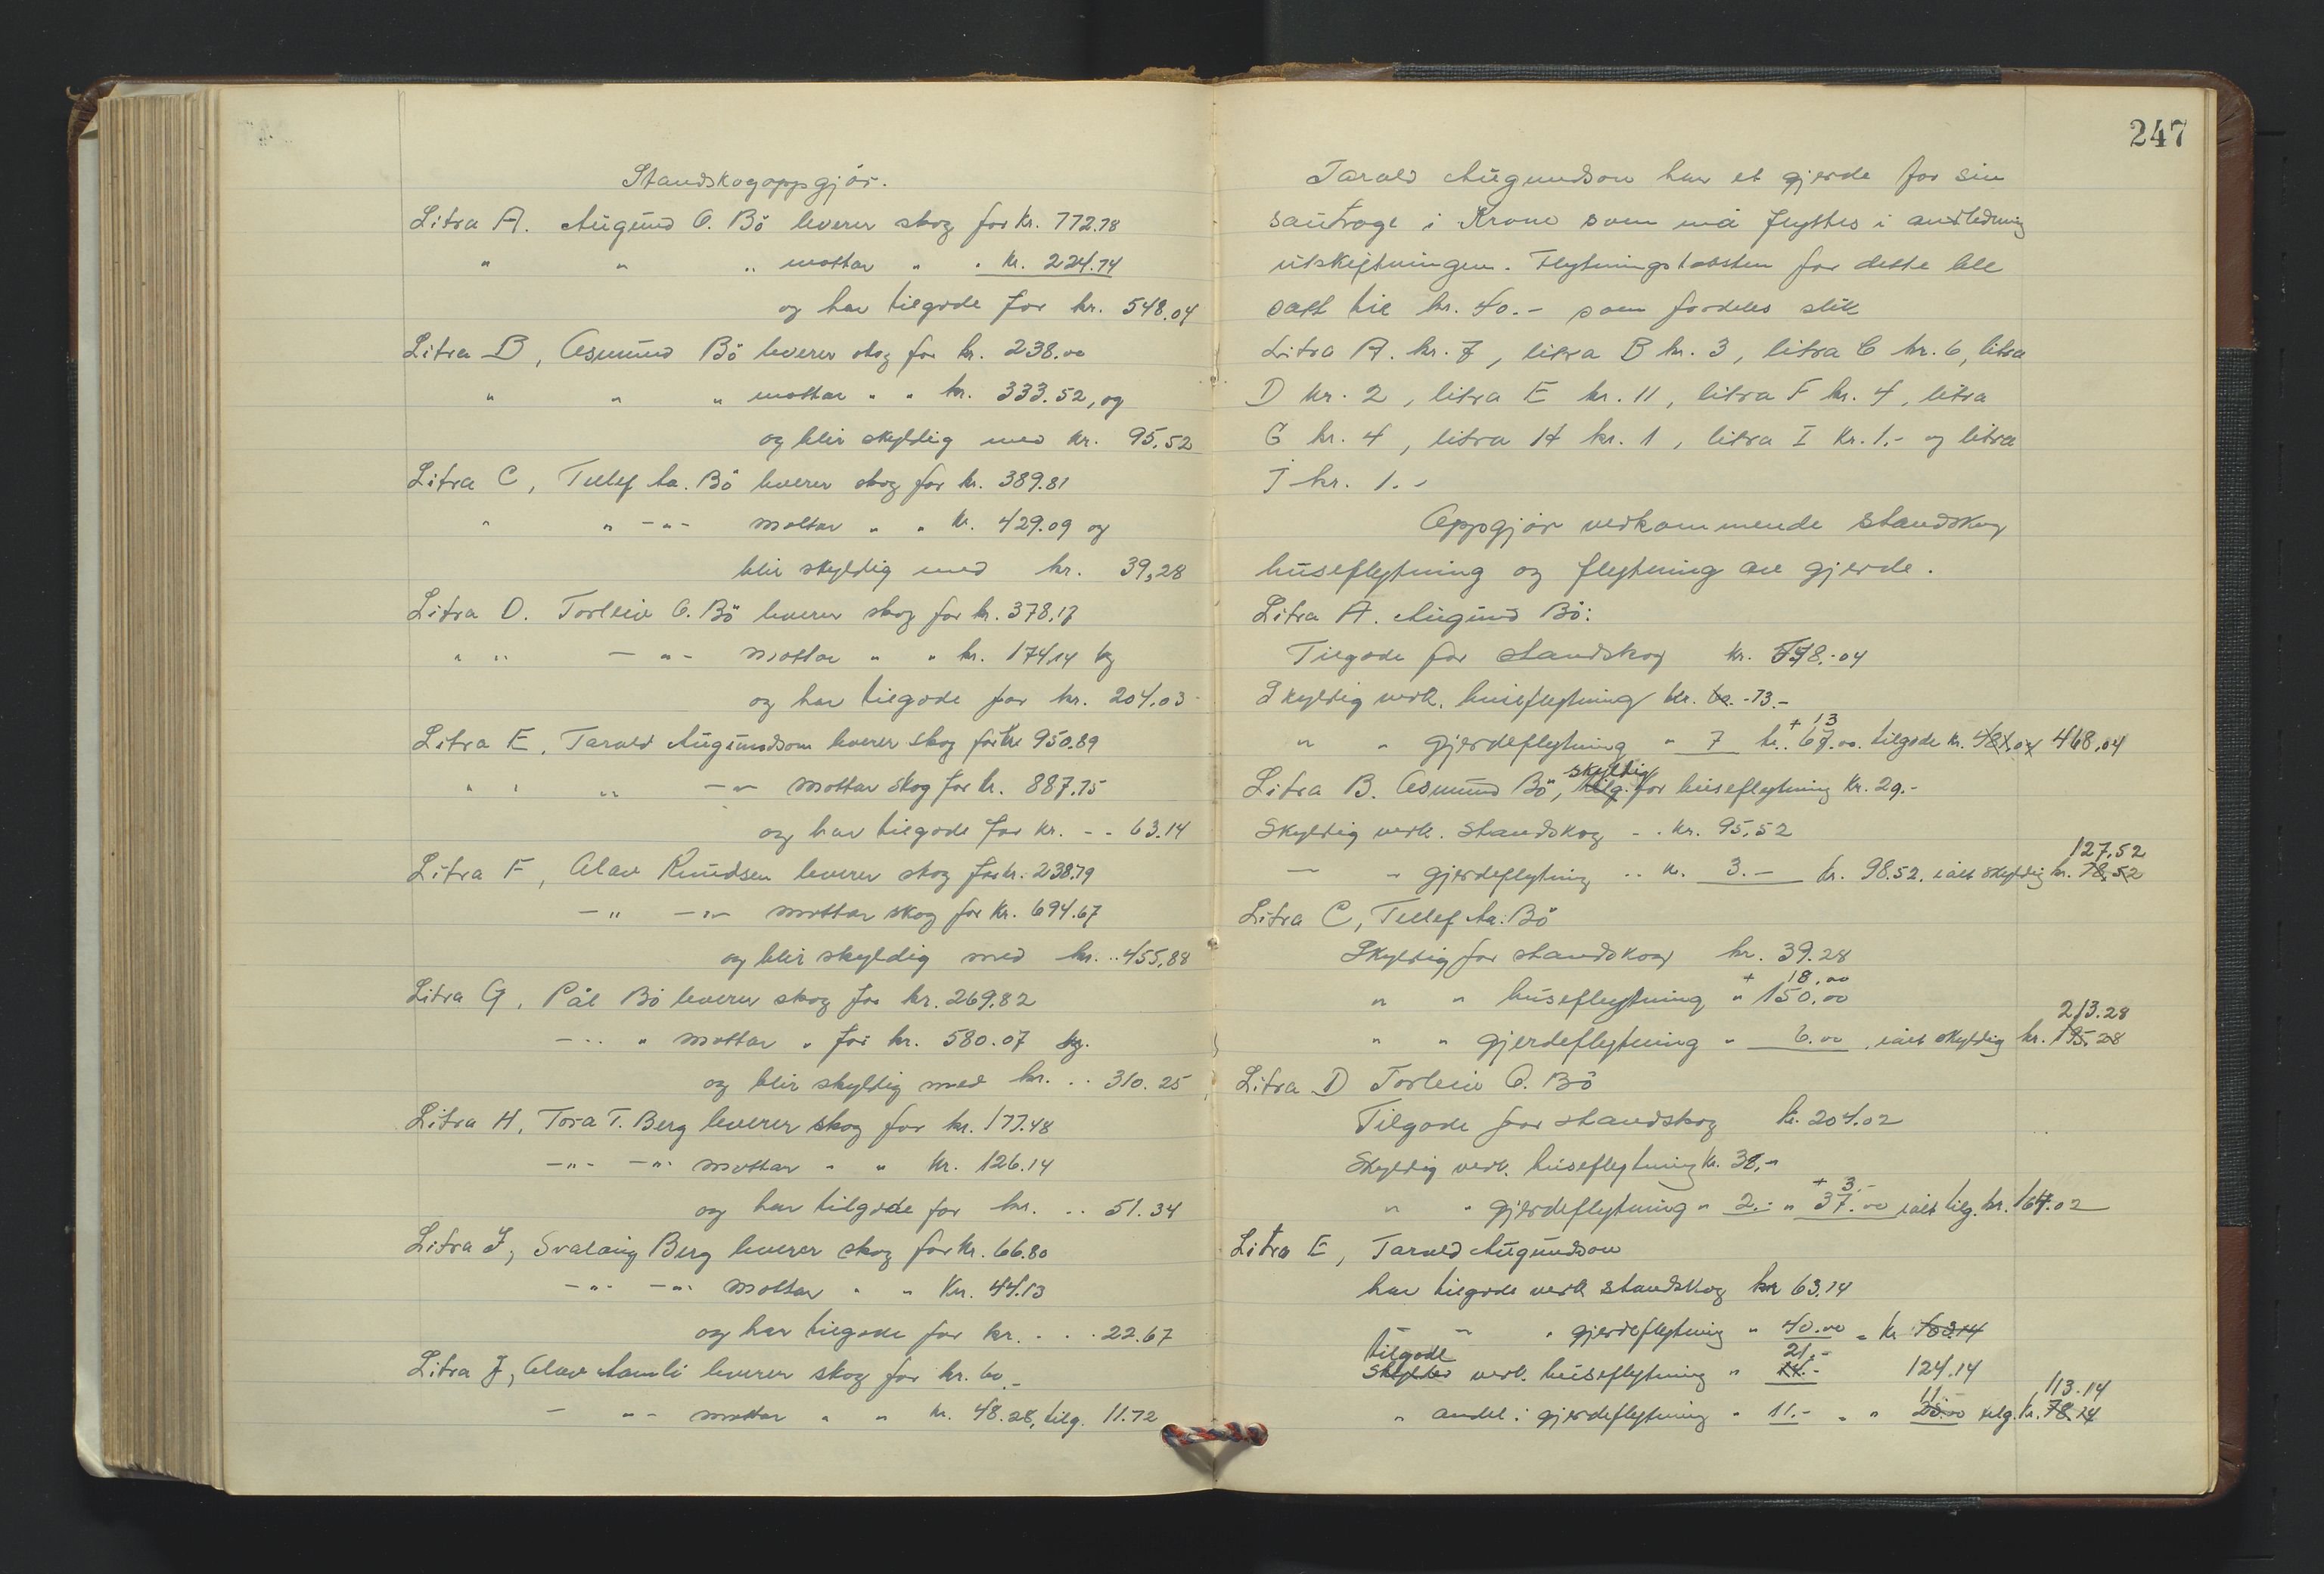 Standskogoppgjör.
Litra A. Augund O. Bö leverer skog for kr. 772.78
" " " mottar " " kr. 224.74
og har tilgode for kr. 548.04
Litra B, Asmund Bö leverer skog for kr. 238.00
" " " mottar " " kr. 333.52, og
og blir skyldig med kr. 95,52
Litra C, Tellef Aa. Bö leverer skog for kr. 389.81
" " -"- mottar " " kr. 429.09 og
blir skyldig med kr. 39,28
Litra D. Torleiv O. Bö leverer skog for kr. 378.17
" " -"- mottar " " kr. 174,14 og
og har tilgode for kr. 204,03
Litra E, Tarald Augundson leverer skog for kr 950.89
" " " -"- mottar skog for kr. 887.75
og har tilgode for kr. - - 63.14
Litra F, Olav Knudsen leverer skog for kr. 238.79
-"- -"- mottar skog for kr. 694.67
og blir skyldig med kr. .. 455,88
Litra G, Pål Bö leverer skog for kr. 269.82
-"- " mottar " for kr. 580.07 og.
og blir skyldig med kr. .. 310.25
Litra H, Tora T. Berg leverer skog for kr. 177.48
-"- -"- mottar " " kr. 126.14
og har tilgode for kr. .. 51.34
Litra I, Svalaug Berg leverer skog for kr. 66.80
-"- -"- mottar " " Kr. 44.13
og har tilgode for kr. . . . 22.67
Litra J, Olav Aamli leverer skog for kr. 60.-
- "- mottar " " kr. 48.28, tilg. 11.72
247
Tarald Augundson har et gjerde for sin
i Krone som må flyttes i anledning
utskiftningen. Flytningskosten for dette ble
satt til kr. 40.- som fordeles slik
Litra A. kr. 7, litra B kr. 3, litra C kr. 6, litra
D kr. 2, litra E kr. 11, litra F kr. 4, litra
G kr. 4, litra H kr. 1, litra I Kr. 1.- og litra
J kr. 1.-
Oppgjör vedkommende standskog
huseflytning og flytning av gjerde.
Litra A. Augund Bö:
Tilgode for standskog kr. 548.-04
Skyldig vedk. huseflytning kr. -73.-
+ 13
" " gjerdeflytning " 7 kr. 67.00. tilgode kr. 481,04 468,04
skyldig
Litra B. Asmund Bö, tilg. for huseflytning Kr. 29.-
Skyldig vedk. standskog - . kr. 95,52
127,52
- " gjerdeflytning .. kr. 3.- kr. 98.52. ialt skyldig kr. 78,52
Litra C, Tellef Aa. Bö
Skyldig for standskog kr. 39.28
+ 18.00
" " huseflytning " 150.00
213.28
" " gjerdeflytning " 6.00, ialt skyldig kr. 195.28
Litra D Torleiv O. Bö
Tilgode for standskog kr. 204.02
Skyldig vedk. huseflytning kr. 38,-
+ 3.-
" " gjerdeflytning " 2.- " 37.00 ialt tilg. kr. 164.02
Litra E, Tarald Augundson
har tilgode vedk standskog kr 63.14
- - " gjerdeflytning " 40.00 " kr 103.14
tilgode 21.-
Skylder vedk. huseflytning " 14.- 124.14
11.- 113.14
" andel i gjerdeflytning " 11.- " " 25.00 tilg. kr. 78.14